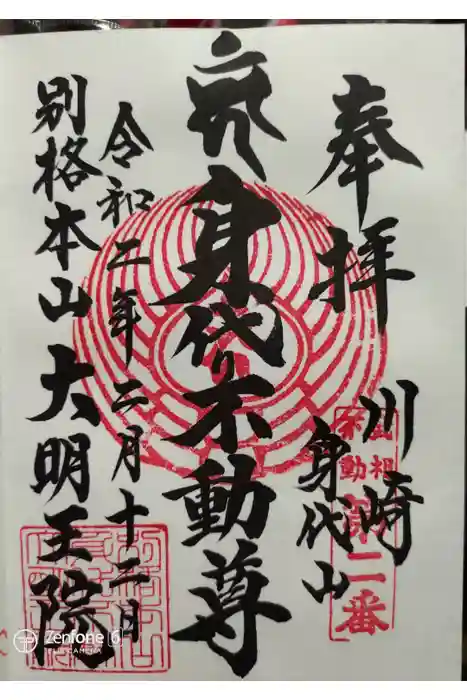 奉拝
川崎
身代山
武相
不動
第二番
身代り不動尊
令和二年二月十二日
別格本山大明王院
Zenfone 6